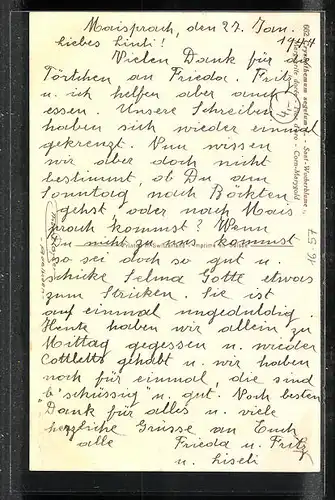 Maisprach, den 27. Jan.
1944
Liebes Lindi!
Vielen Dank für die
Törtchen an Frieda. Fritz
u. ich helfen aber auch
essen. Unsere Schreiben
haben sich wieder einmal
gekreuzt. Nun wissen
wir aber doch nicht
bestimmt, ob Du am
Sonntag nach Böckten
gehst, oder nach Mais
prach kommst? Wenn
Du nicht zu uns kommst
so sei doch so gut u.
schicke Selma Gotte etwas
zum Stricken. Sie ist
auf einmal ungeduldig.
Heute haben wir allein zu
Mittag gegessen u. wieder
Cottletts gehabt u. wir haben
noch für einmal die sind
"schüssig" u. gut. Noch besten
Dank für alles u. viele
herzliche Grüsse an Euch
alle Frieda u. Fritz
u. Liseli
Chrysanthemum segetum L. - Saat-Wucherblume
Marguerite dorée - Corn-Marygold
4.-